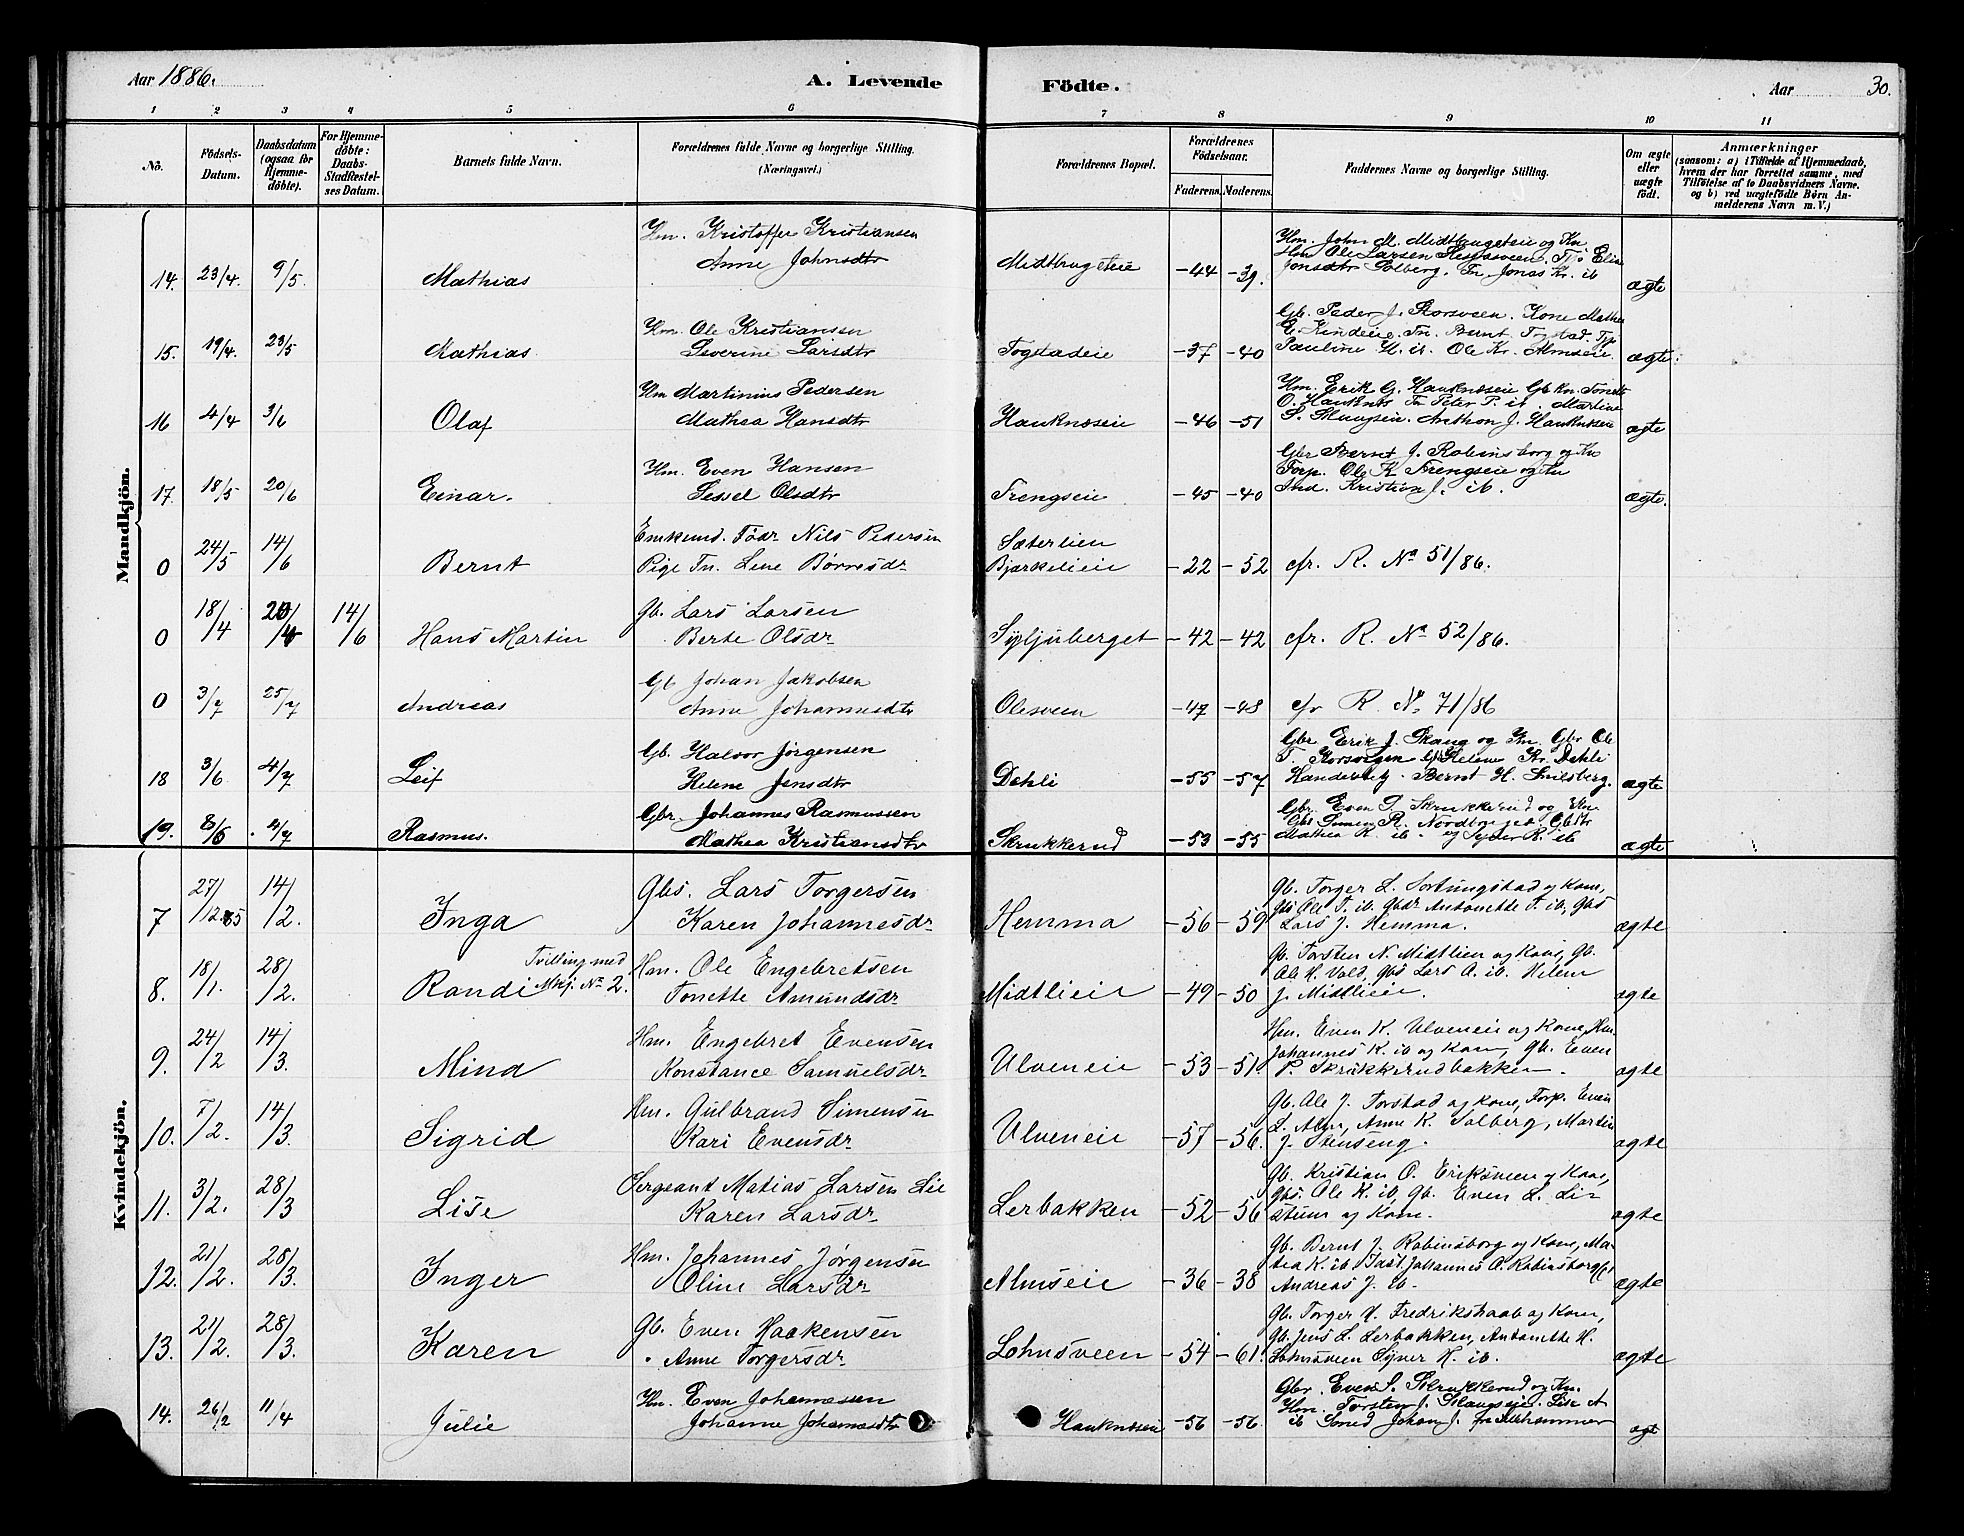 Aar 1886.
A. Levende
Födte.
Aar
30.
1 2 3 4 5 6 7 8 9 10 11
No.
Födsels-Datum.
Daabsdatum (ogsaa for Hjemmedöbte).
For Hjemmedöbte: Daabs-Stadfæstelses Datum.
Barnets fulde Navn.
Forældrenes fulde Navne og borgerlige Stilling.
(Næringsvei.)
Forældrenes Bopæl.
Forældrenes Födselsaar.
Faderens. Moderens.
Faddernes Navne og borgerlige Stilling.
Om ægte eller uægte födt.
Anmærkninger
(saasom: a) i Tilfælde af Hjemmedaab,
hvem der har forrettet samme, med
Tilföielse af to Daabsvidners Navne,
og b) ved uægtefödte Börn Anmelderens Navn m. V.)
Mandkjön.
14. 23/4. 9/5. Mathias Hm. Kristoffer Kristiansen
Anne Johnsdtr Midtbrugeteie -44 -39. ægte
15. 19/4. 23/5 Mathias Hm. Ole Kristiansen
Severine Larsdtr Fogstadeie -37 -40 ægte.
Gb. Peder J. Korsveen. Kone Mathea
Pauline H. ib. Ole Kr. Almseie.
16 4/4 3/6 Olaf Hm Martinius Pedersen
Mathea Hansdtr Hauknæseie -46 -51 ægte
17. 18/5 20/6 Einar. Hm. Even Hansen
Sessel Olsdtr Frengseie -45 -40 ægte.
Gbr Bernt J. Robinsborg og Kn
Forp. Ole K Frengseie og Kn
Ind. Kristian J. ib.
0 24/5 14/6 Bernt Enkemd. Födr Nils Pedersen
Pige Fn. Lene Børresdr Sæterlien
Bjørkelieie -22 -52 cfr. R. No 51/86.
0 18/4 14/6 Hans Martin gb. Lars Larsen
Berte Olsdr Syljuberget -42 -42 cfr. R. No 52/86.
0 3/7 25/7 Andreas Gb Johan Jakobsen
Anne Johannesdtr Olesveen -47 -48 cfr R. No 71/86
18 3/6 4/7 Leif Gb. Halvor Jørgensen
Helene Jensdtr Dehli -55 -57 ægte
Gbr Erik J. Skaug og Kn. Gbr Ole
19. 8/6 4/7 Rasmus. Gbr. Johannes Rasmussen
Mathea Kristiansdtr Skrukkerud -53 -55 ægte
Gbr. Even P. Skrukkerud og Kn.
Kvindekjön.
7 27/12.85 14/2. Inga Gbs. Lars Torgersen
Karen Johannesdr Hemma -56 -59 ægte
Gb. Torger L. Sortungstad og Kone,
Gbs Ole T. ib, gbdr Antonette T. ib, gbs
Lars J. Hemma.
8. 18/1. 28/2. Randi Tvilling med
Mkj. No 2. Hm. Ole Engebretsen
Tonette Amundsdr Midtlieie -49 -50 ægte
gb. Torsten N. Midtlien og Kone, Gb.
Ole H. Vold, gbs Lars A. ib. Helene
J. Midtlieie.
9. 24/2 14/3. Mina Hm. Engebret Evensen
Konstance Samuelsdr Ulveneie -53 -51. ægte
Hm. Even K. Ulveneie og Kone, Hm.
Johannes K. ib og Kone, gb. Even
P. Skrukkerudbakken.
10. 7/2. 14/3. Sigrid Hm. Gulbrand Simensen
Kari Evensdr Ulveneie -57 -56. ægte
gb. Ole J. Forstad og Kone, Forp. Even
L. Alm, Anne K. Solberg, Martin
J. Stenseng.
11. 3/2. 28/3 Lise Sergeant Matias Larsen Lie
Karen Larsdr Lerbakken -52 -56 ægte
gb. Kristian O. Eriksveen og Kone,
gbs. Ole K. ib, gb. Even L. Li-
stuen og Kone.
12. 21/2. 28/3. Inger Hm. Johannes Jørgensen
Oline Larsdr Almseie -36 -38 ægte
gb. Bernt J. Robinsborg og Kone, Ma-
tea K. ib,
Andreas J. ib.
13. 21/2. 28/3. Karen Gb. Even Haakensen
Anne Torgersdr Lohnsveen -54 -61. ægte
gb. Torger H. Fredrikshaab og Kone,
gb. Jens L. Lerbakken, Antonette H.
Lohnsveen Syver H. ib.
14. 26/2 11/4 Julie Hm. Even Johannessen
Johanne Johannesdtr Hauknæseie -56 -56. ægt
Gbr. Even P. Skrukkerud og Kn.